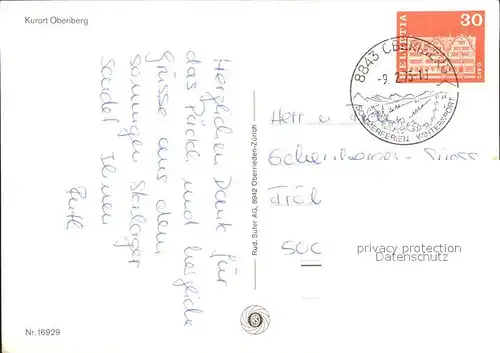 Kurort Oberiberg
Herzlichen Dank für
das Päckli und herzliche
Grüsse aus dem
sonnigen Skilager
sendet Ihnen
Ruth
Nr. 16929
Rud. Suter AG, 8942 Oberrieden-Zürich
HELVETIA
30
GAIS
8843 OBERIBERG
-9. 2. 75-11
SOMMERFERIEN WINTERSPORT
Herr u.
500
privacy protection
Datenschutz